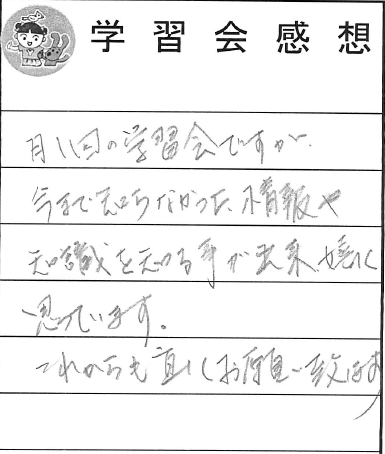 学習会感想
月１回の学習会ですが、
今まで知らなかった情報や
知識を知る事が出来、嬉しく
思っています。
これからも宜しくお願い致します